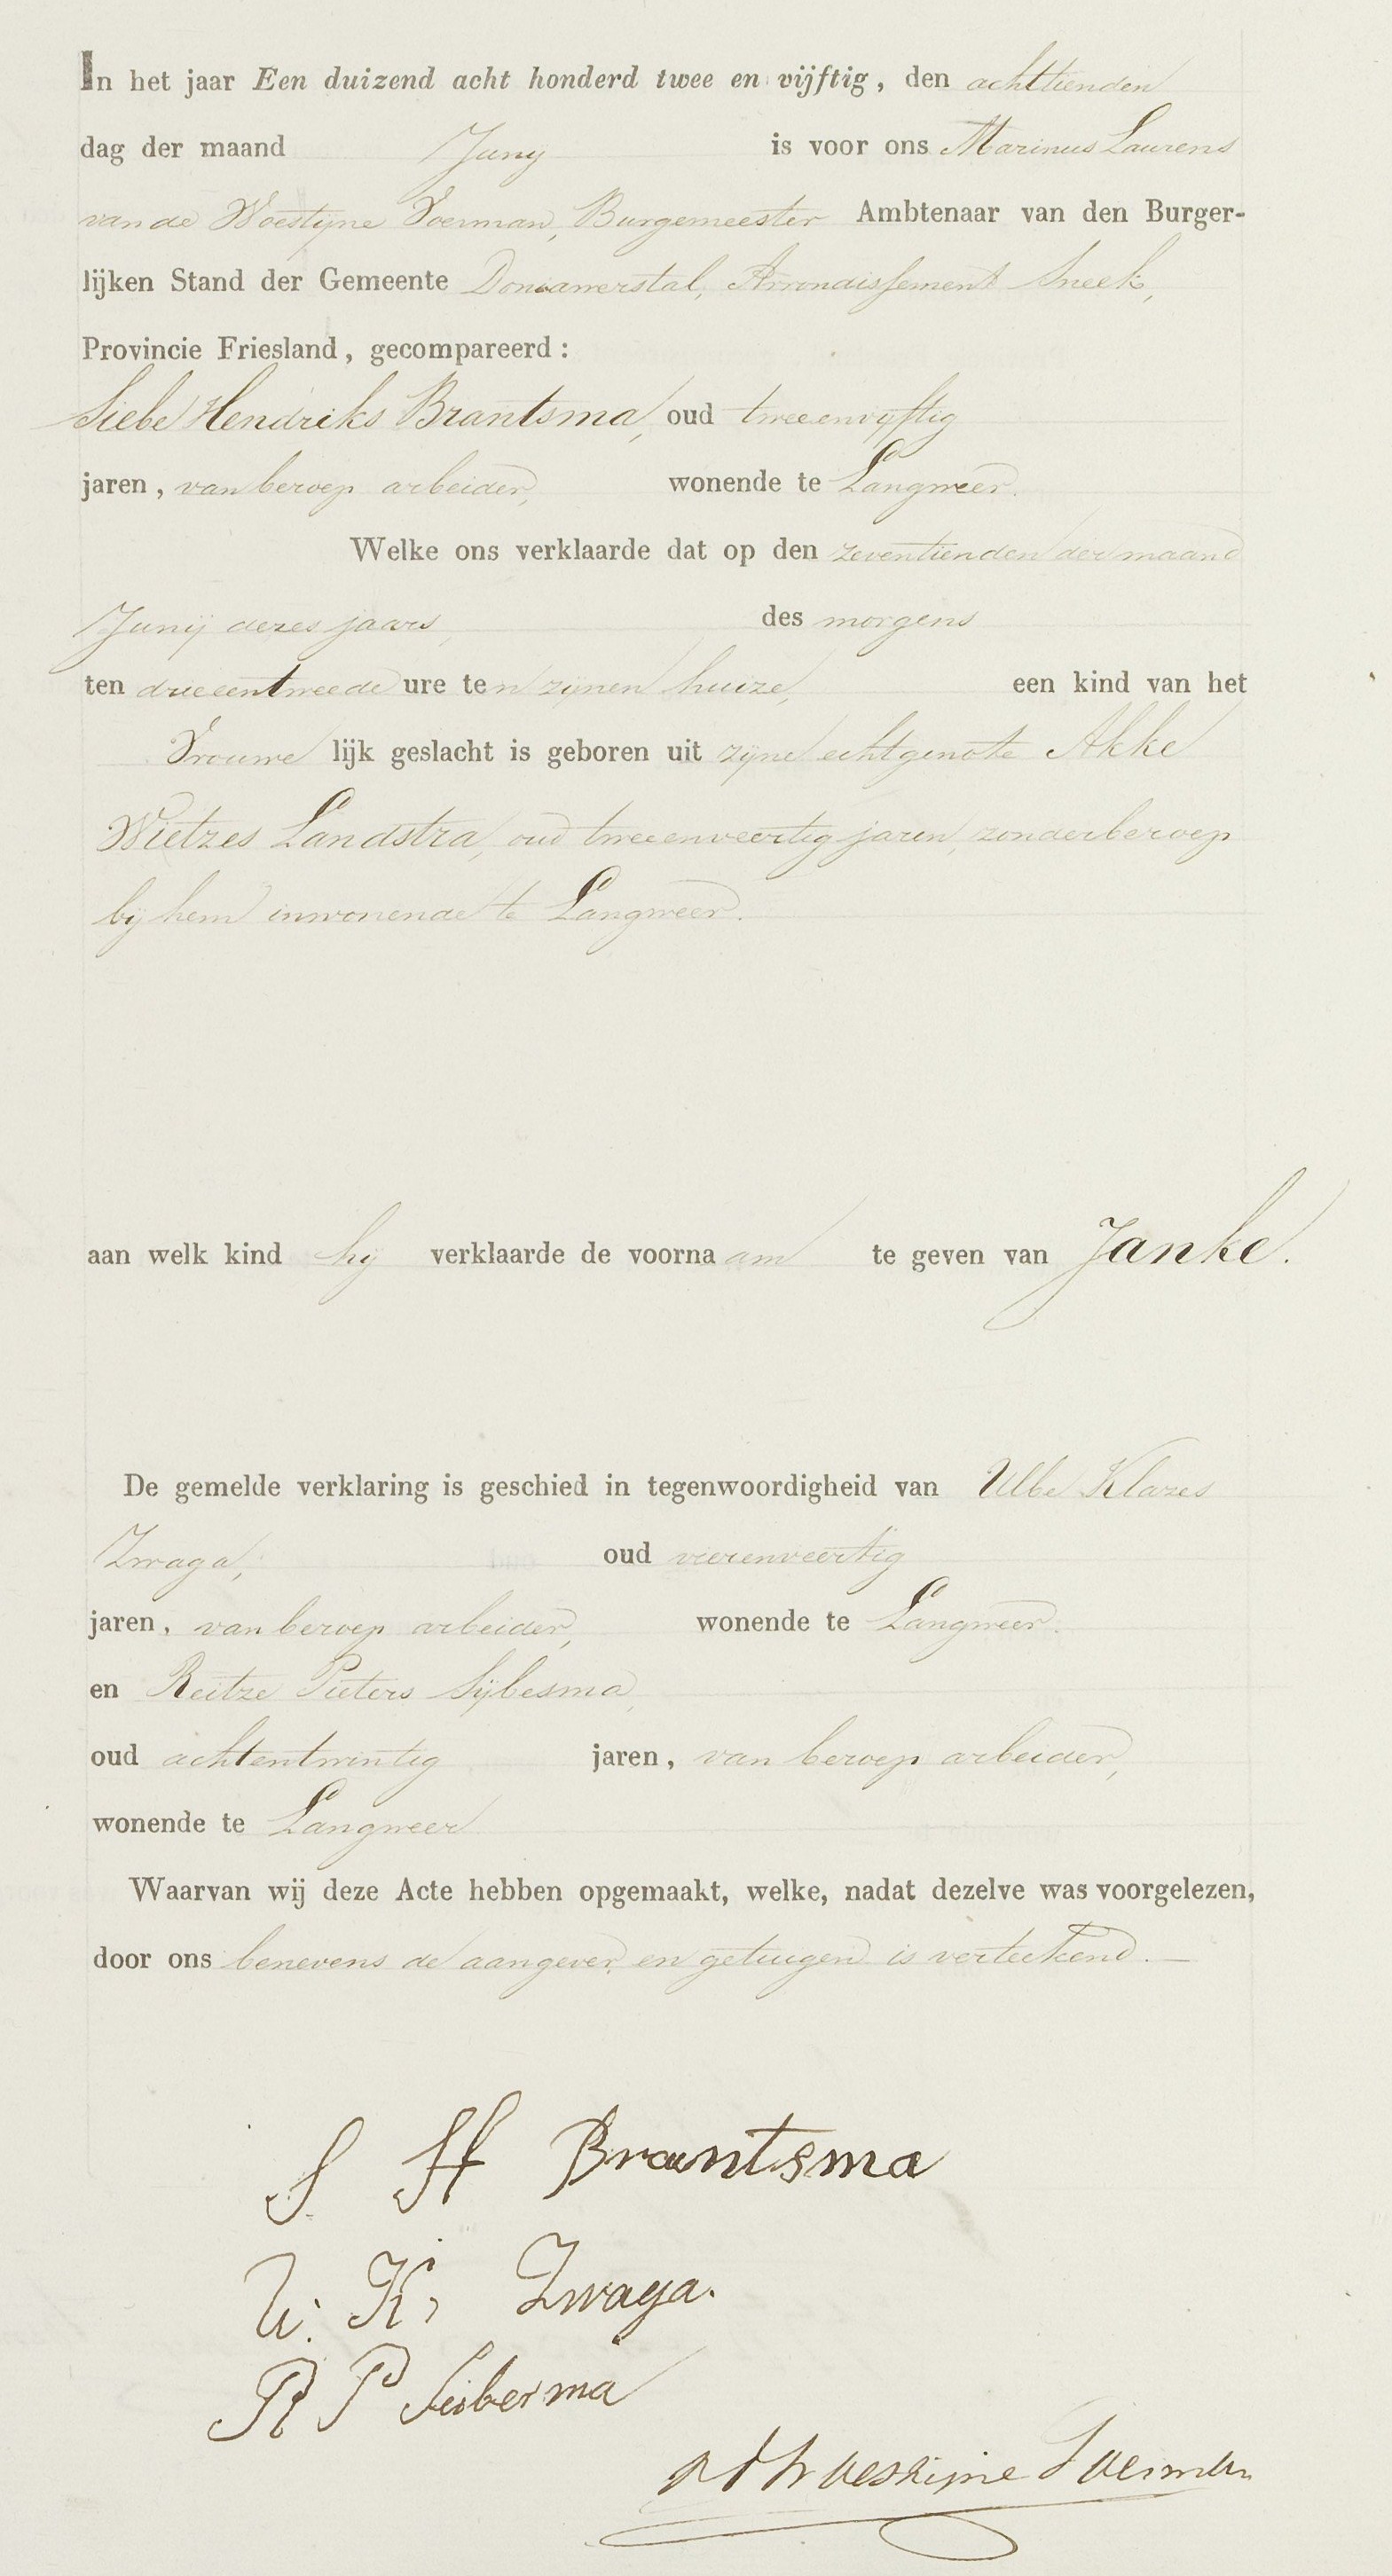 In het jaar Een duizend acht honderd twee en vijftig, den achttienden
dag der maand Junij is voor ons Marinus Laurens
van de Woestijne Voerman, Burgemeester Ambtenaar van den Burger-
lijken Stand der Gemeente Doniawerstal, Arrondissement Sneek,
Provincie Friesland, gecompareerd:
Siebe Hendriks Brantsma, oud tweeenvijftig
jaren, van beroep arbeider, wonende te Langweer.
Welke ons verklaarde dat op den zeventienden der maand
Junij dezes jaars, des morgens
ten drieentweede ure ten zijnen huize, een kind van het
Vrouwe lijk geslacht is geboren uit zijne echtgenote Akke
Wietzes Landstra, oud tweeenveertig jaren, zonder beroep
bij hem inwonende te Langweer.
aan welk kind hij verklaarde de voornaam te geven van Janke.
De gemelde verklaring is geschied in tegenwoordigheid van Ulbe Klazes
Zwaga, oud vierenveertig
jaren, van beroep arbeider, wonende te Langweer.
en Reitze Pieters Sijbesma,
oud achtentwintig jaren, van beroep arbeider,
wonende te Langweer
Waarvan wij deze Acte hebben opgemaakt, welke, nadat dezelve was voorgelezen,
door ons benevens de aangever en getuigen is verteekend. —
S H Brantsma
U. K, Zwaga.
R P Seibesma
Woestijne Voerman